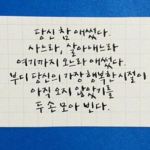 당신 참 애썼다.
사느라, 살아내느라
여기까지 오느라 애썼다.
부디 당신의 가장 행복한 시절이
아직 오지 않았기를
두 손 모아 빈다.